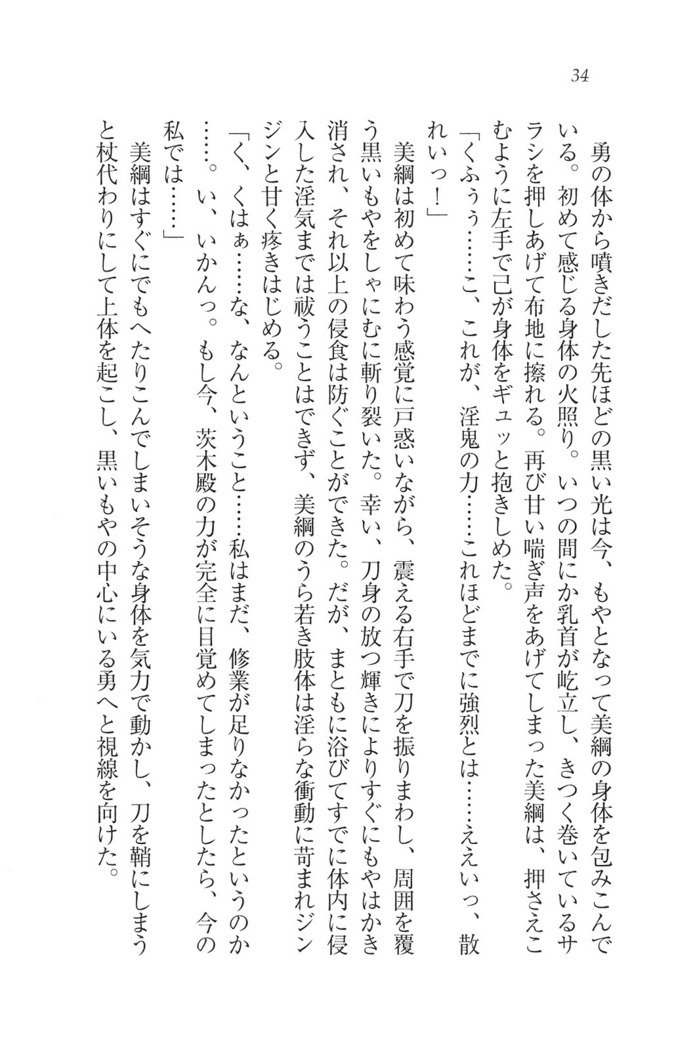 34
勇の体から噴きだした先ほどの黒い光は今、もやとなって美綱の身体を包みこんで
いる。初めて感じる身体の火照り。いつの間にか乳首が屹立し、きつく巻いているサ
ラシを押しあげて布地に擦れる。再び甘い喘ぎ声をあげてしまった美綱は、押さえこ
むように左手で己が身体をギュッと抱きしめた。
「くふぅぅ……こ、これが、淫鬼の力……これほどまでに強烈とは……ええいっ、散
れいっ！」
美綱は初めて味わう感覚に戸惑いながら、震える右手で刀を振りまわし、周囲を覆
う黒いもやをしゃにむに斬り裂いた。幸い、刀身の放つ輝きによりすぐにもやはかき
消され、それ以上の侵食は防ぐことができた。だが、まともに浴びてすでに体内に侵
入した淫気までは祓うことはできず、美綱のうら若き肢体は淫らな衝動に苛まれジン
ジンと甘く疼きはじめる。
「く、くはぁ……な、なんということ……私はまだ、修業が足りなかったというのか
……。い、いかんっ。もし今、茨木殿の力が完全に目覚めてしまったとしたら、今の
私では……」
美綱はすぐにでもへたりこんでしまいそうな身体を気力で動かし、刀を鞘にしまう
と杖代わりにして上体を起こし、黒いもやの中心にいる勇へと視線を向けた。